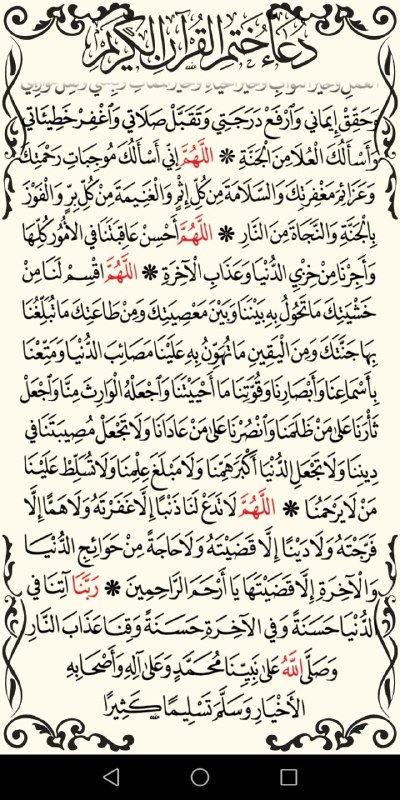 دُعَاءُ خَتْمِ القُرْآنِ الكَرِيمِ
وَحَقِّقْ إِيمَانِي وَارْفَعْ دَرَجَتِي وَتَقَبَّلْ صَلَاتِي وَاغْفِرْ خَطِيئَاتِي
وَأَسْأَلُكَ الْعُلَا مِنَ الْجَنَّةِ ❋ اللَّهُمَّ إِنِّي أَسْأَلُكَ مُوجِبَاتِ رَحْمَتِكَ
وَعَزَائِمَ مَغْفِرَتِكَ وَالسَّلَامَةَ مِنْ كُلِّ إِثْمٍ وَالْغَنِيمَةَ مِنْ كُلِّ بِرٍّ وَالْفَوْزَ
بِالْجَنَّةِ وَالنَّجَاةَ مِنَ النَّارِ ❋ اللَّهُمَّ أَحْسِنْ عَاقِبَتَنَا فِي الْأُمُورِ كُلِّهَا
وَأَجِرْنَا مِنْ خِزْيِ الدُّنْيَا وَعَذَابِ الْآخِرَةِ ❋ اللَّهُمَّ اقْسِمْ لَنَا مِنْ
خَشْيَتِكَ مَا تَحُولُ بِهِ بَيْنَنَا وَبَيْنَ مَعْصِيَتِكَ وَمِنْ طَاعَتِكَ مَا تُبَلِّغُنَا
بِهَا جَنَّتَكَ وَمِنَ الْيَقِينِ مَا تُهَوِّنُ بِهِ عَلَيْنَا مَصَائِبَ الدُّنْيَا وَمَتِّعْنَا
بِأَسْمَاعِنَا وَأَبْصَارِنَا وَقُوَّتِنَا مَا أَحْيَيْتَنَا وَاجْعَلْهُ الْوَارِثَ مِنَّا وَاجْعَلْ
ثَأْرَنَا عَلَى مَنْ ظَلَمَنَا وَانْصُرْنَا عَلَى مَنْ عَادَانَا وَلَا تَجْعَلْ مُصِيبَتَنَا فِي
دِينِنَا وَلَا تَجْعَلِ الدُّنْيَا أَكْبَرَ هَمِّنَا وَلَا مَبْلَغَ عِلْمِنَا وَلَا تُسَلِّطْ عَلَيْنَا
مَنْ لَا يَرْحَمُنَا ❋ اللَّهُمَّ لَا تَدَعْ لَنَا ذَنْبًا إِلَّا غَفَرْتَهُ وَلَا هَمًّا إِلَّا
فَرَّجْتَهُ وَلَا دَيْنًا إِلَّا قَضَيْتَهُ وَلَا حَاجَةً مِنْ حَوَائِجِ الدُّنْيَا
وَالْآخِرَةِ إِلَّا قَضَيْتَهَا يَا أَرْحَمَ الرَّاحِمِينَ ❋ رَبَّنَا آتِنَا فِي
الدُّنْيَا حَسَنَةً وَفِي الْآخِرَةِ حَسَنَةً وَقِنَا عَذَابَ النَّارِ
وَصَلَّى اللَّهُ عَلَى نَبِيِّنَا مُحَمَّدٍ وَعَلَى آلِهِ وَأَصْحَابِهِ
الْأَخْيَارِ وَسَلَّمَ تَسْلِيمًا كَثِيرًا